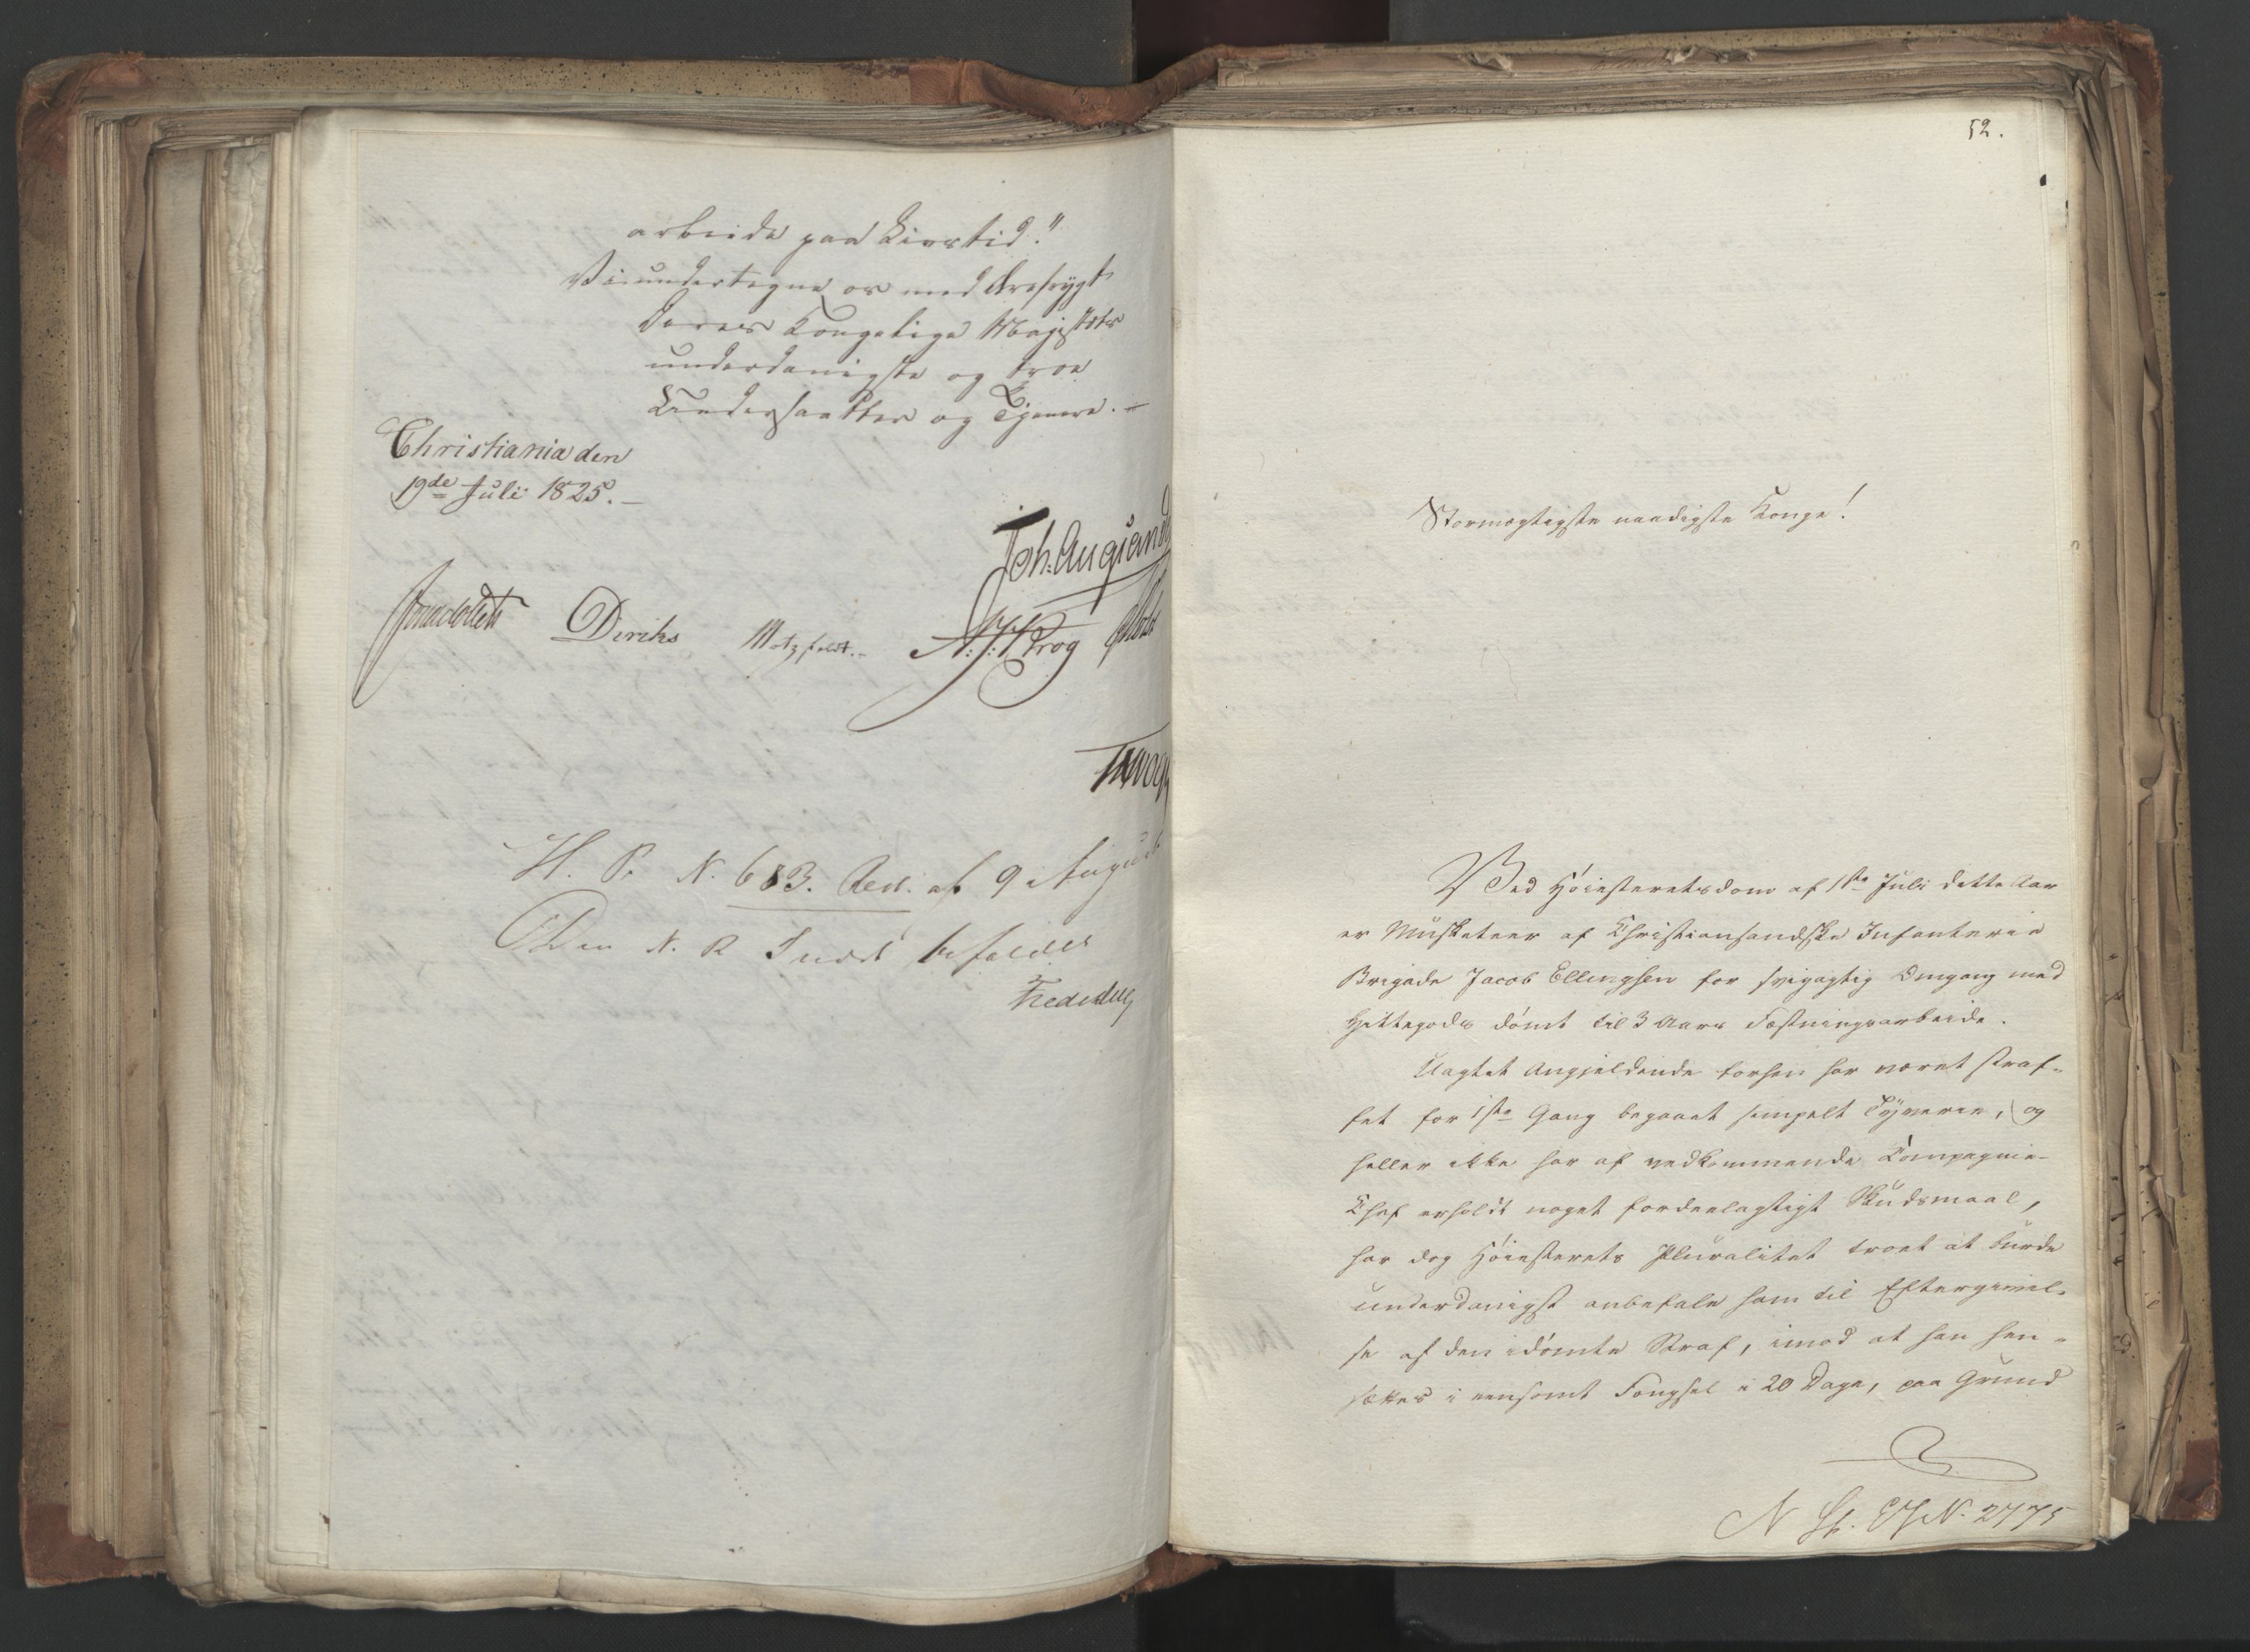 arbeide paa Livstid."
Vi undertegne os med Ærefrygt
Deres Kongelige Majestæts
underdanigste og troe
Undersaatter og Tjenere. –
Christiania den
19de Juli 1825. –
Diriks Motzfeldt. –
H. P. N. 683. Res. af 9 August
Den N. R. Indst. befaldet
52.
Stormægtigste naadigste Konge!
Ved Høiesteretsdom af 1ste Juli dette Aar
er Musketeer af Christiansandske Infanterie
Brigade Jacob Ellingsen for svigagtig Omgang med
Hittegods dømt til 3 Aars Fæstningsarbeide.
Uagtet Angjeldende forhen har været straf-
fet for 1ste Gang begaaet simpelt Tyverie, og
heller ikke har af vedkommende Compagnie-
Chef erholdt noget fordeelagtigt Skudsmaal,
har dog Høiesterets Pluralitet troet at burde
underdanigst anbefale ham til Eftergivel-
se af den idømte Straf, imod at han hen-
sættes i eensomt Fængsel i 20 Dage, paa Grund
N. 2775